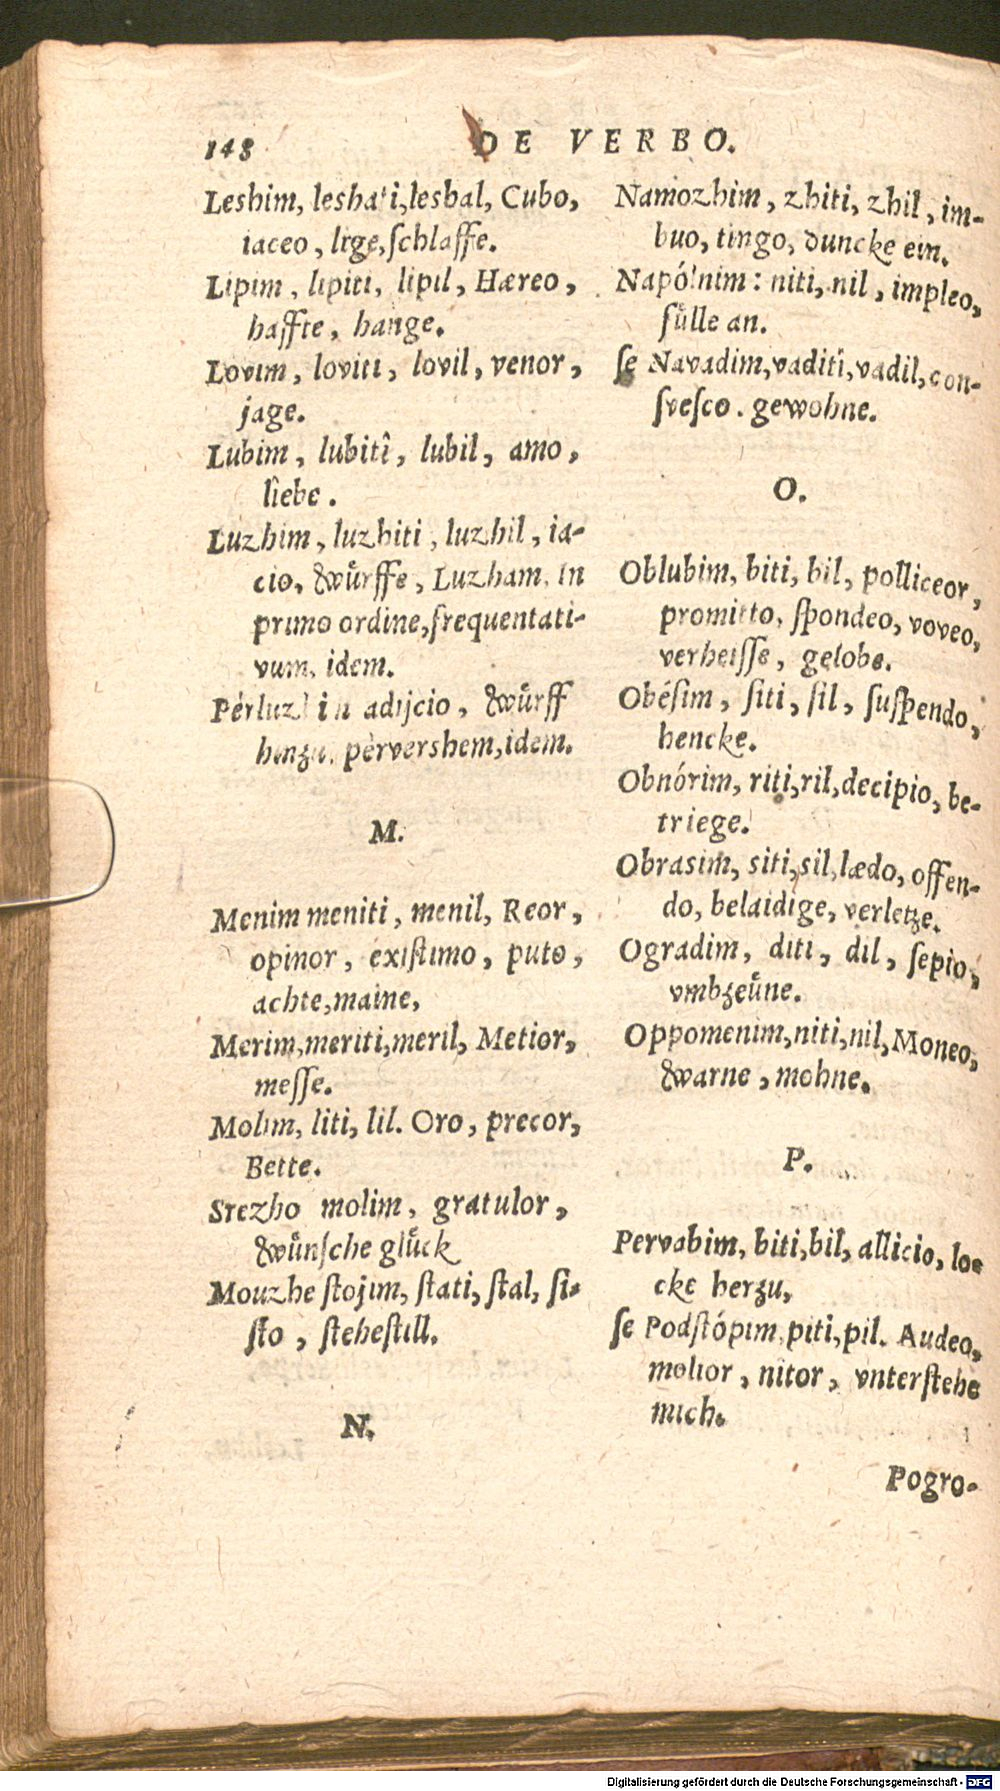 148
DE VERBO.
Leshim, leshati, leshal, Cubo,
iaceo, lige, schlaffe.
Lipim, lipiti, lipil, Hæreo,
haffte, hange.
Lovim, loviti, lovil, venor,
jage.
Lubim, lubitî, lubil, amo,
liebe.
Luzhim, luzhiti, luzhil, ia-
cio, würffe, Luzham, in
primo ordine, frequentati-
vum, idem.
adijcio, würff
hinzu, pèrvershem, idem.
M.
Menim meniti, menil, Reor,
opinor, existimo, puto,
achte, maine,
Merim, meriti, meril, Metior,
messe.
Molim, liti, lil. Oro, precor,
Bette.
Srezho molim, gratulor,
wünsche glück
Mouzhe stojim, stati, stal, si-
sto, stehestill.
N.
Namozhim, zhiti, zhil, im-
buo, tingo, duncke ein.
Napólnim: niti, nil, impleo,
fülle an.
se Navadim, vaditî, vadil, con-
svesco. gewohne.
O.
Oblubim, biti, bil, polliceor,
promitto, spondeo, voveo,
verheisse, gelobe.
Obésim, siti, sil, suspendo,
hencke.
Obnórim, riti, ril, decipio, be-
triege.
Obrasim, siti, sil, lædo, offen-
do, belaidige, verletze.
Ogradim, diti, dil, sepio,
vmbzeüne.
Oppomenim, niti, nil, Moneo,
warne, mohne.
P.
Pervabim, biti, bil, allicio, lo-
cke herzu,
se Podstópim, piti, pil. Audeo,
molior, nitor, vnterstehe
mich.
Pogro-
Digitalisierung gefördert durch die Deutsche Forschungsgemeinschaft - DFG